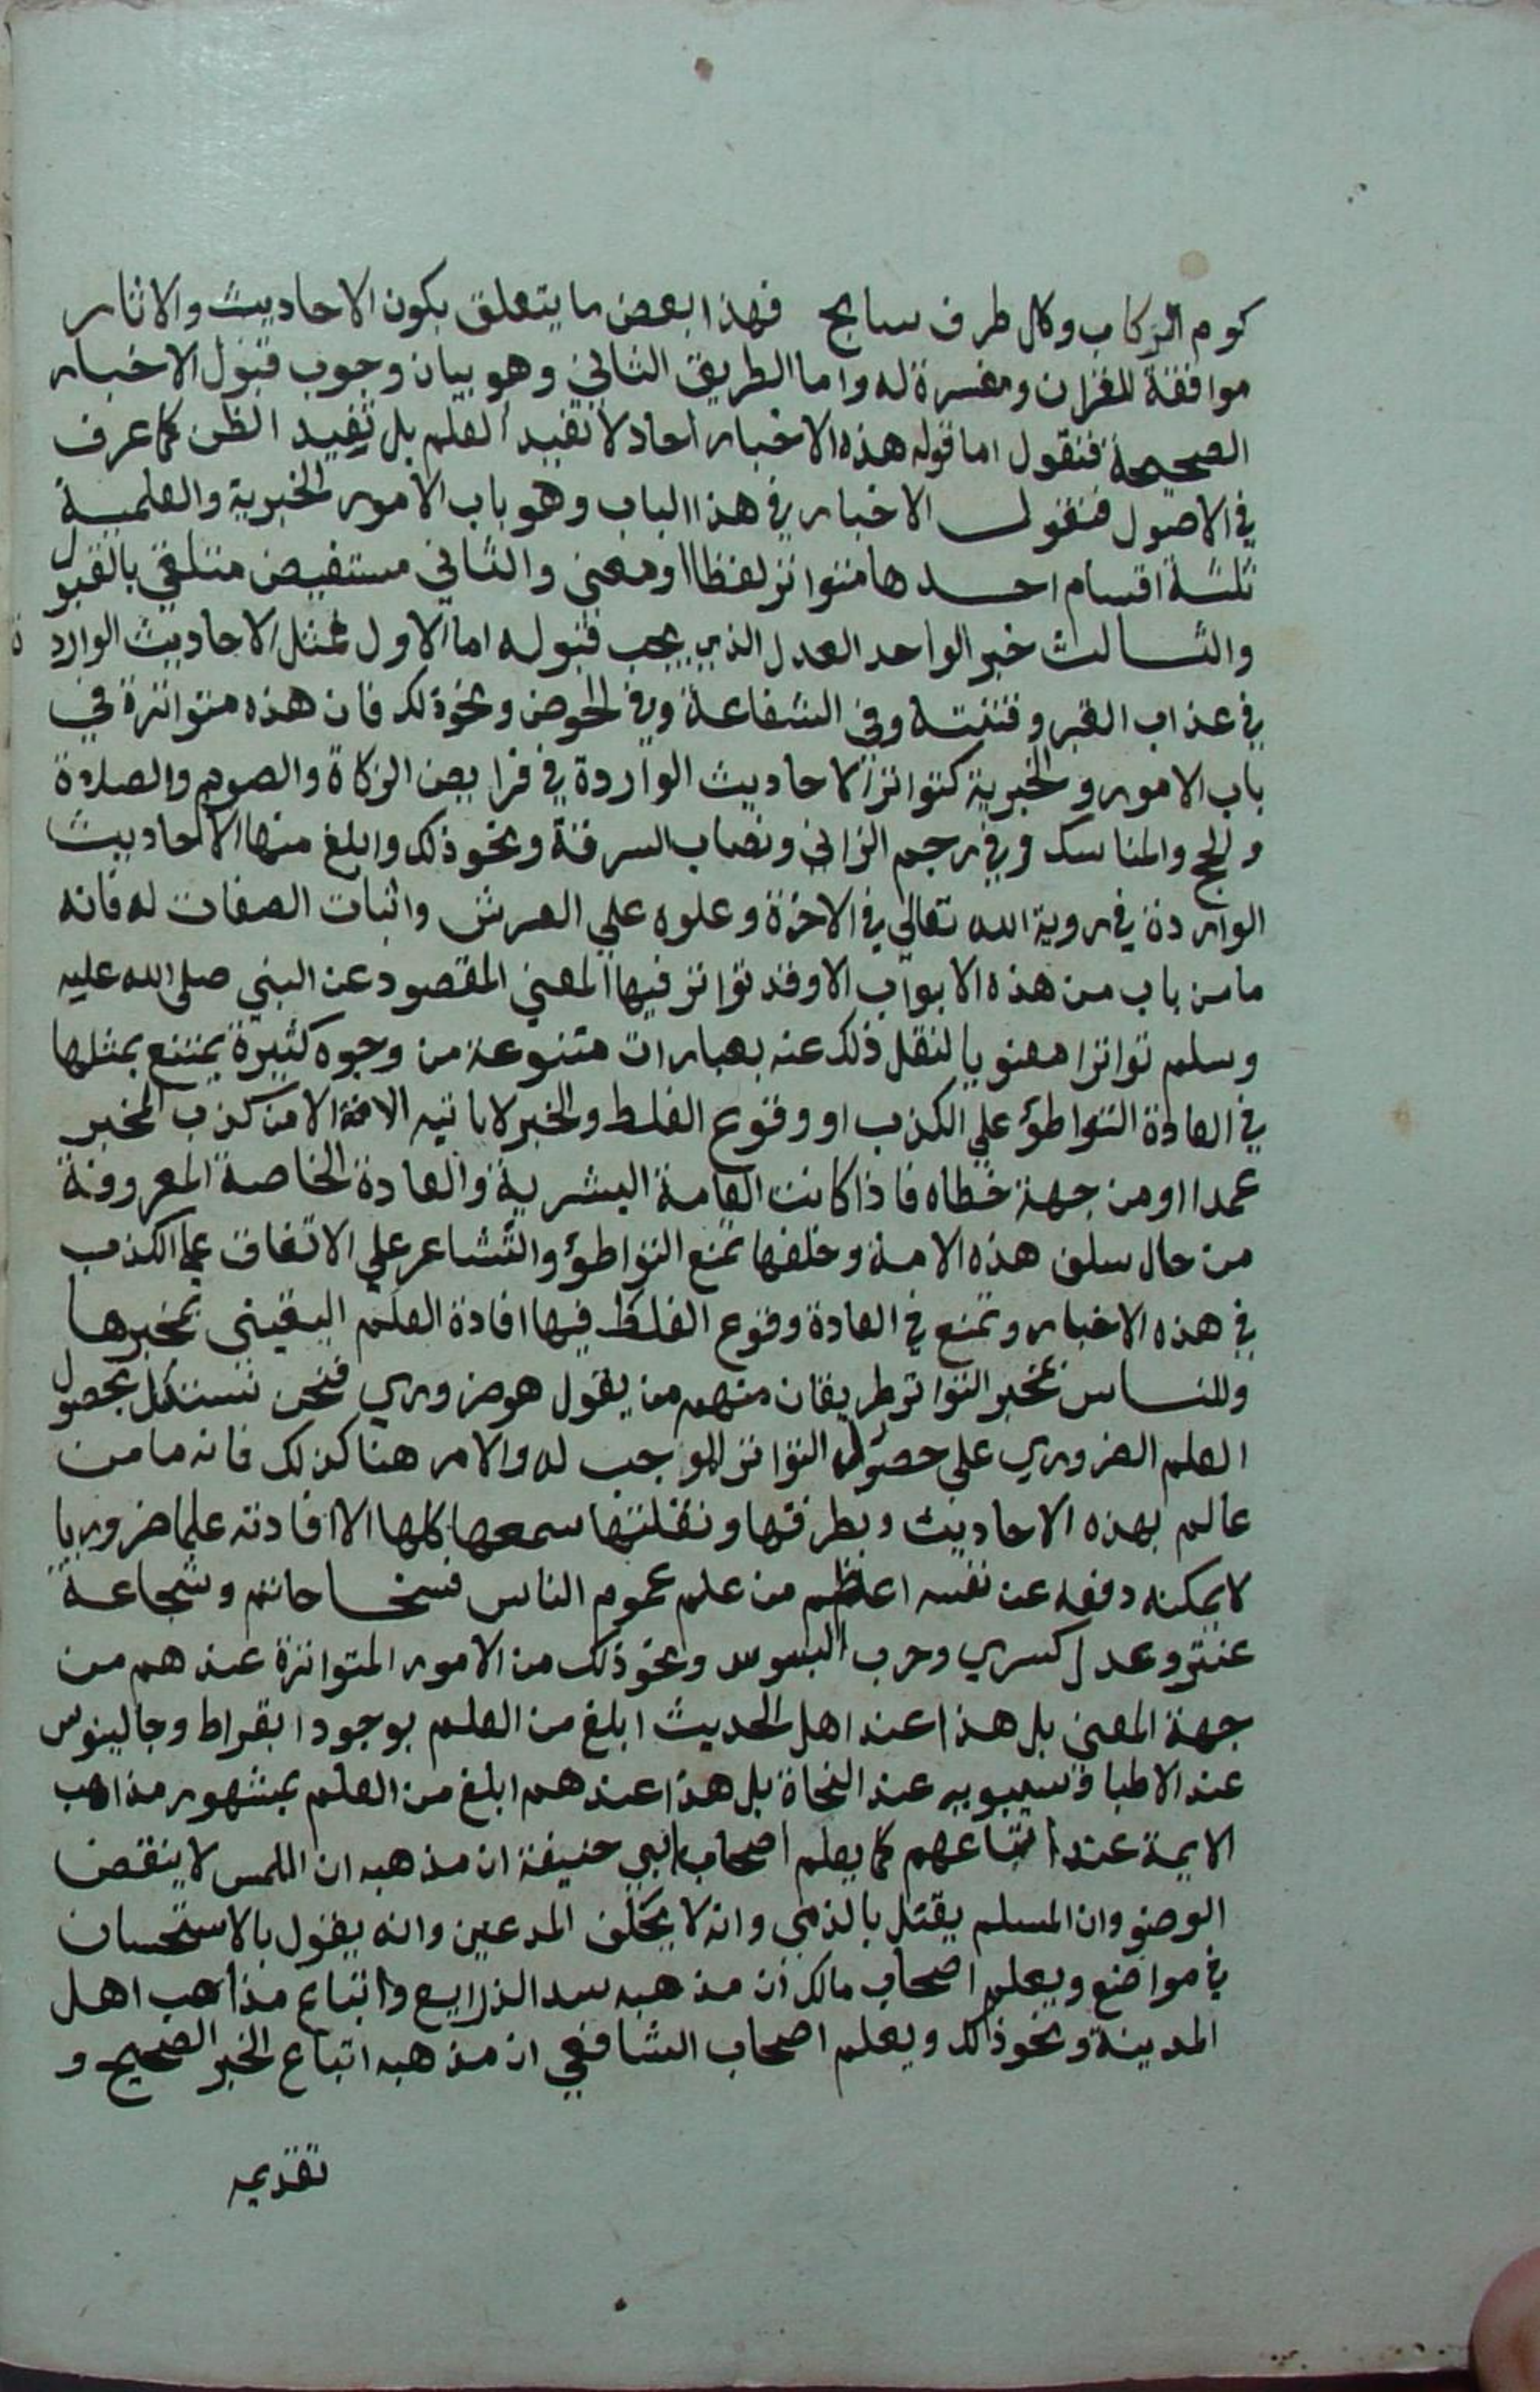 كوم الركاب وكل طرف سابح فهذا بعض ما يتعلق بكون الاحاديث والاثار
موافقة للقران ومفسرة له واما الطريق الثاني وهو بيان وجوب قبول الاخبار
الصحيحة فنقول اما قوله هذه الاخبار احاد لا تفيد العلم بل تفيد الظن كما عرف
في الاصول فنقول الاخبار في هذا الباب وهو باب الامور الخبرية والعلمية
ثلثة اقسام احدها متواتر لفظا او معنى والثاني مستفيض متلقي بالقبول
والثالث خبر الواحد العدل الذي يجب قبوله اما الاول فمثل الاحاديث الواردة
في عذاب القبر وفتنته وفي الشفاعة وفي الحوض ونحو ذلك فان هذه متواترة في
باب الامور والخبرية كتواتر الاحاديث الواردة في فرايض الزكاة والصوم والصلاة
والحج والمناسك وفي رجم الزاني ونصاب السرقة ونحو ذلك وابلغ منها الاحاديث
الواردة في روية الله تعالي في الاخرة وعلوه علي العرش واثبات الصفات له فانه
ما من باب من هذه الابواب الا وقد تواتر فيها المعني المقصود عن النبي صلى الله عليه
وسلم تواترا معنويا لنقل ذلك عنه بعبارات متنوعة من وجوه كثيرة يمتنع بمثلها
في العادة التواطؤ علي الكذب او وقوع الغلط والخبر لا ياتيه الافة الا من كذب المخبر
عمدا او من جهة خطاه فاذا كانت العامة البشرية والعادة الخاصة المعروفة
من حال سلف هذه الامة وخلفها تمنع التواطؤ والتشاعر علي الاتفاق علي الكذب
في هذه الاخبار وتمنع في العادة وقوع الغلط فيها افادة العلم اليقيني بمخبرها
وللناس بمخبر التواتر طريقان منهم من يقول هو ضروري فنحن نستدل بحصول
العلم الضروري على حصول التواتر الموجب له والامر هنا كذلك فانه ما من
عالم بهذه الاحاديث وبطرقها ونقلتها سمعها كلها الا افادته علما ضروريا
لا يمكنه دفعه عن نفسه اعظم من علم عموم الناس فسخا حاتم وشجاعة
عنتر وعدل كسري وحرب البسوس ونحو ذلك من الامور المتواترة عندهم من
جهة المعني بل هذا عند اهل الحديث ابلغ من العلم بوجود ابقراط وجالينوس
عند الاطبا وسيبويه عند النحاة بل هذا عندهم ابلغ من العلم بمشهور مذاهب
الايمة عند اتباعهم كما يعلم اصحاب ابي حنيفة ان مذهبه ان اللمس لا ينقض
الوضو وان المسلم يقتل بالذمي وانه لا يحلف المدعين وانه يقول بالاستحسان
في مواضع ويعلم اصحاب مالك ان مذهبه سد الذرايع واتباع مذاهب اهل
المدينة ونحو ذلك ويعلم اصحاب الشافعي ان مذهبه اتباع الخبر الصحيح و
تقديمه